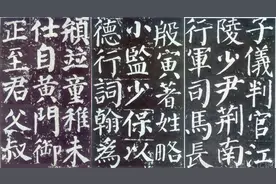 子儀判官江
陵少尹荆南
行軍司馬長
殷寅著姓略
小監少保以
德行詞翰為
竝童稚未
仕自黄門御
正至君父叔